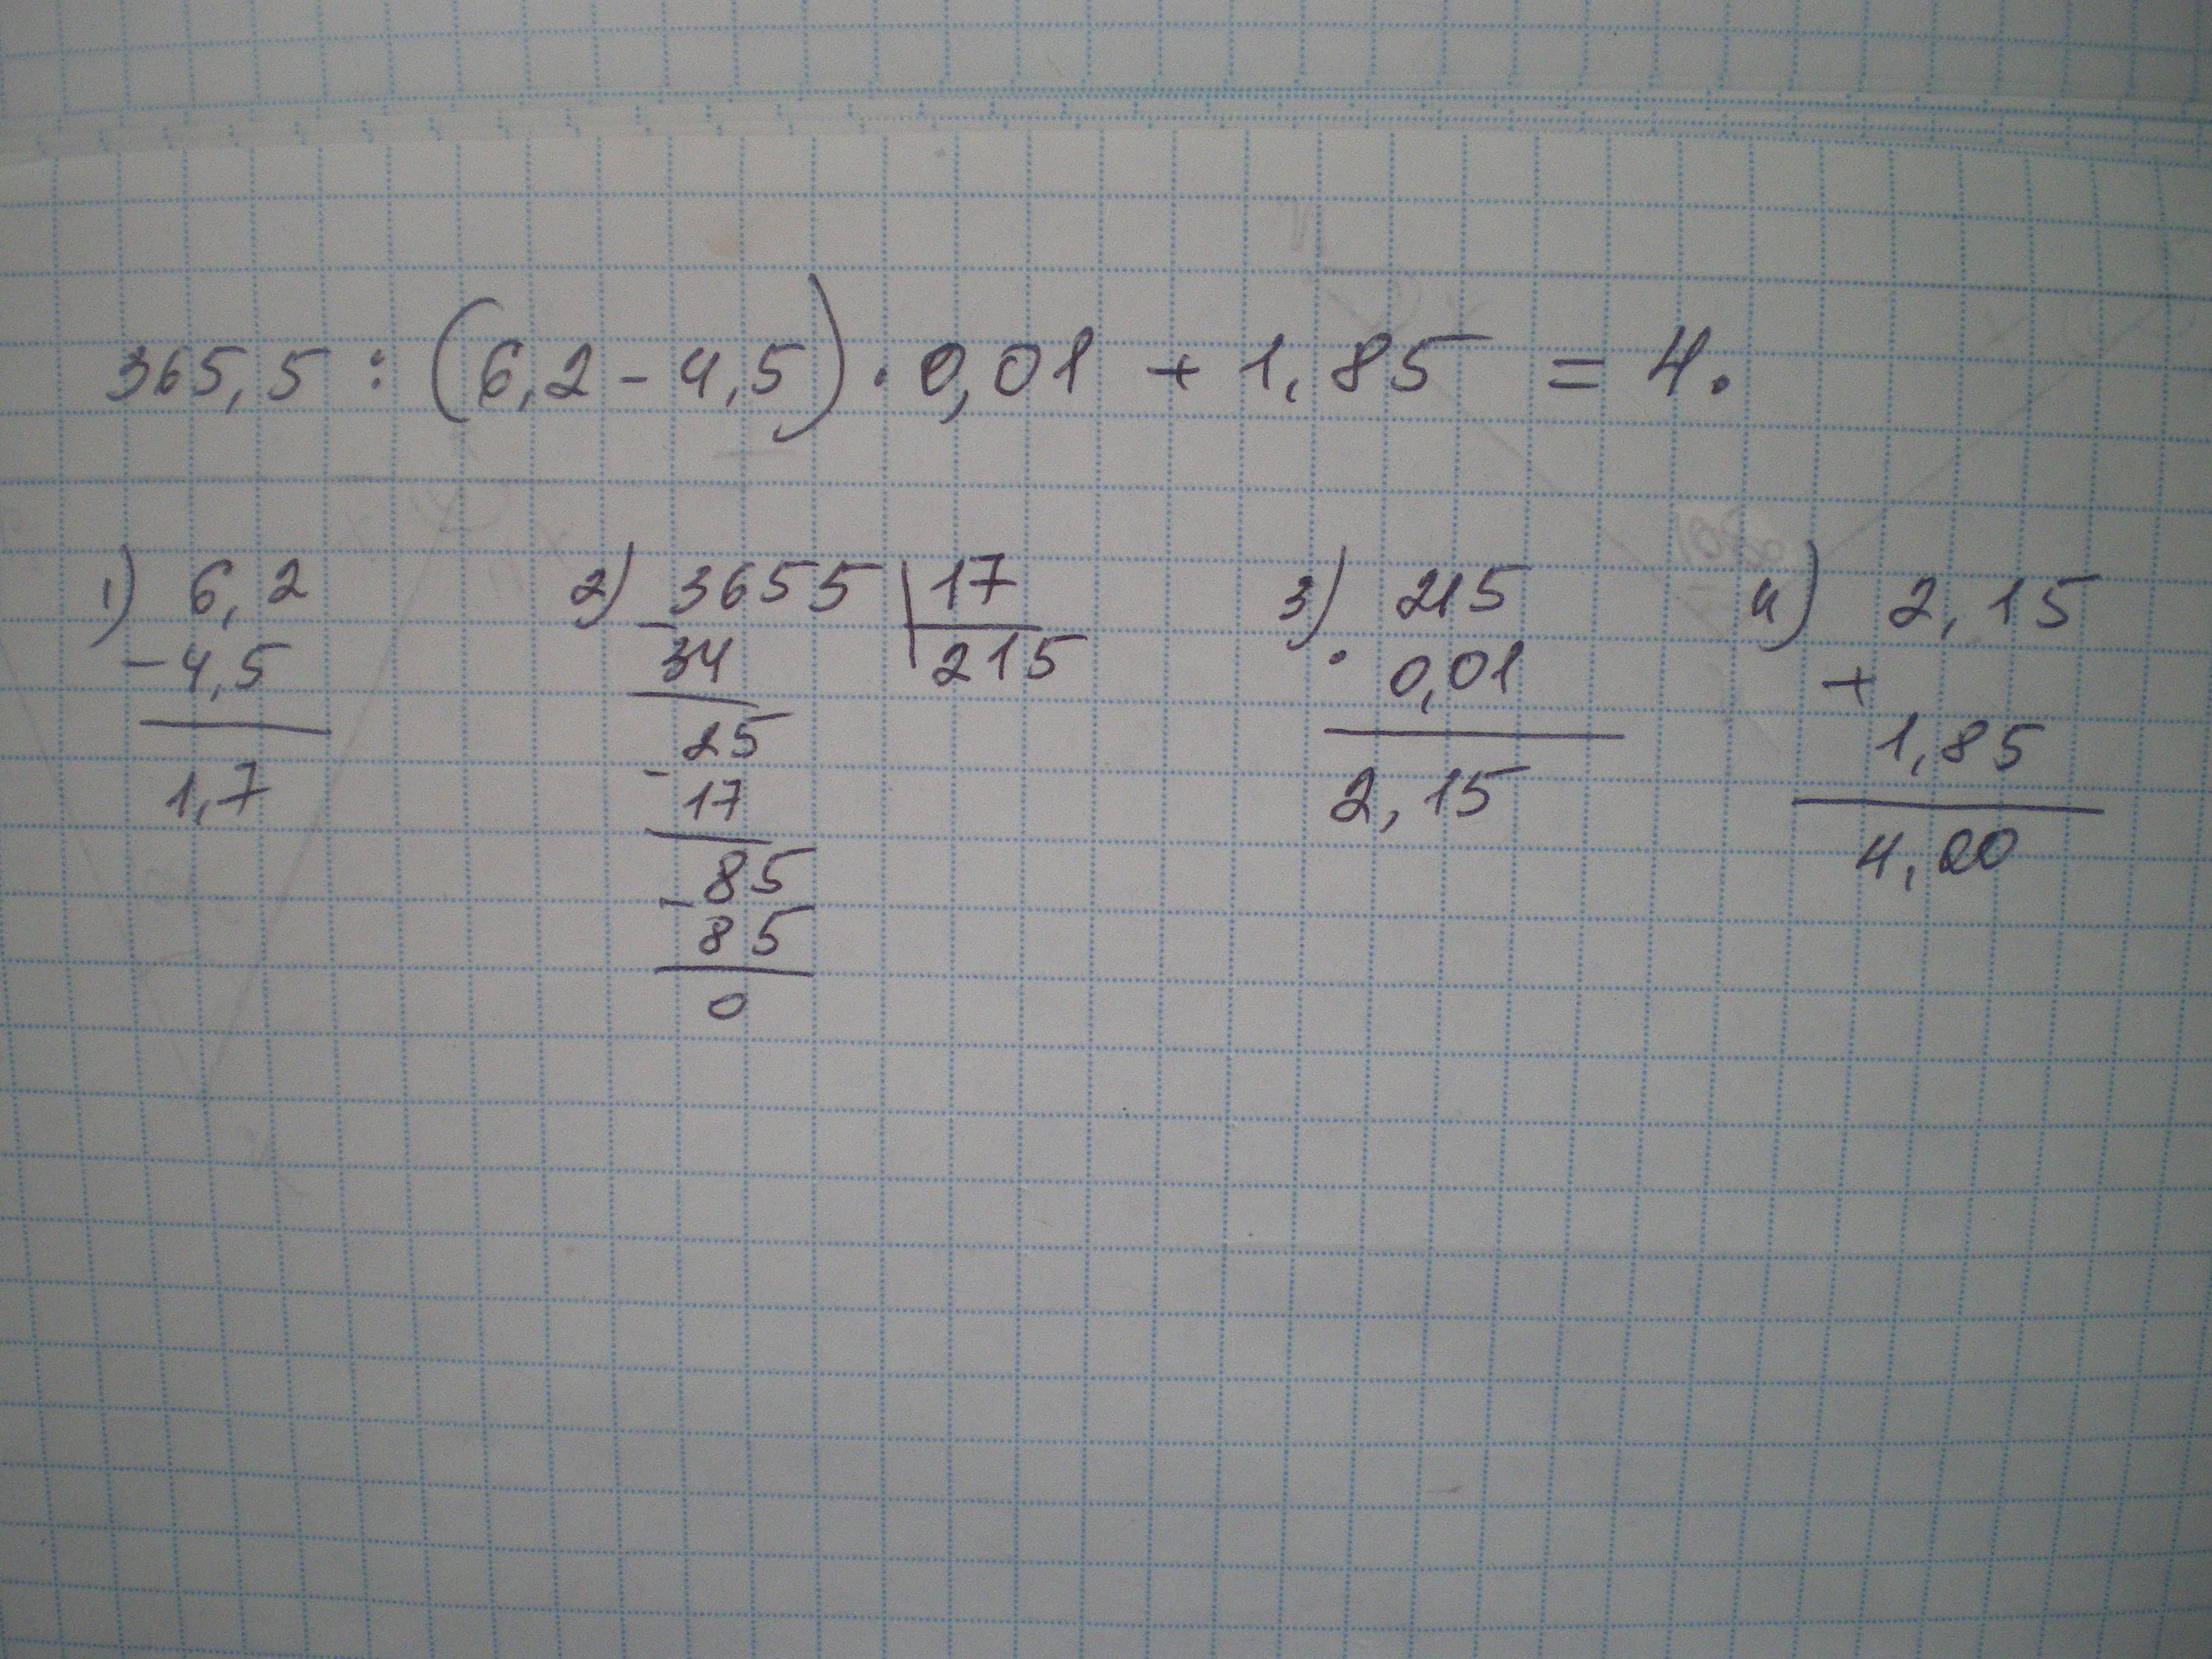 365,5 : (6,2 - 4,5) · 0,01 + 1,85 = 4.
1) 6,2
- 4,5
1,7
2) 3655 | 17
- 34 | 215
25
- 17
85
- 85
0
3) 215
· 0,01
2,15
4) 2,15
+
1,85
4,00